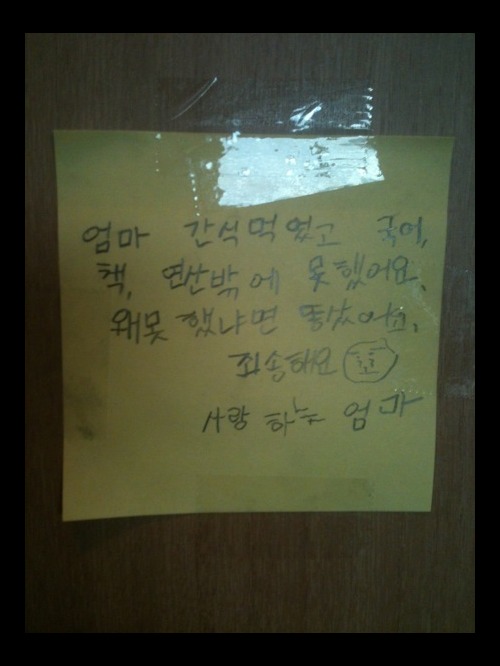 엄마 간식먹었고 국어,
책, 연산박에 못했어요.
왜못했냐면 똥쌌어요.
죄송해요
사랑하는 엄마